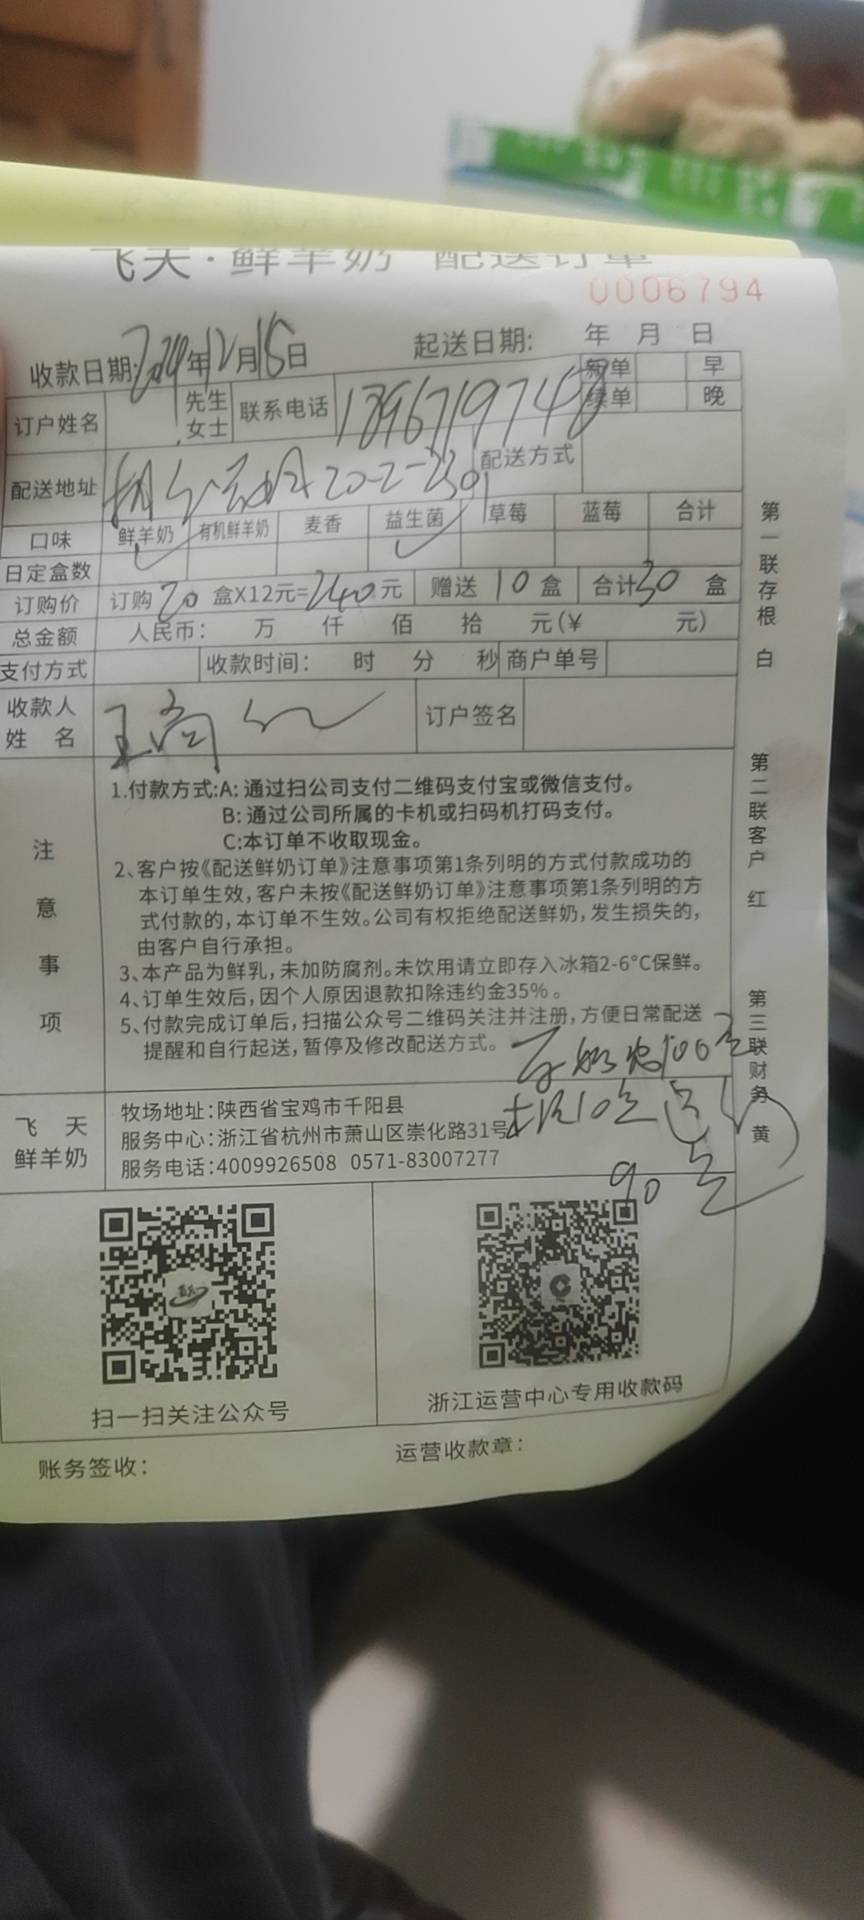 飞天·鲜羊奶 配送订单
0006794
收款日期: 2024年12月15日 起送日期: 年 月 日
订户姓名 先生 女士 联系电话 1396719748 新单 早
续单 晚
配送地址 20-2-2301 配送方式
口味 鲜羊奶 有机鲜羊奶 麦香 益生菌 草莓 蓝莓 合计
日定盒数
订购价 订购20盒X12元=240元 赠送10盒 合计30盒
总金额 人民币: 万 仟 佰 拾 元(¥ 元)
支付方式 收款时间: 时 分 秒 商户单号
收款人姓名 王 订户签名
注意事项
1.付款方式:A: 通过扫公司支付二维码支付宝或微信支付。
B: 通过公司所属的卡机或扫码机打码支付。
C:本订单不收取现金。
2、客户按《配送鲜奶订单》注意事项第1条列明的方式付款成功的
本订单生效,客户未按《配送鲜奶订单》注意事项第1条列明的方
式付款的,本订单不生效。公司有权拒绝配送鲜奶,发生损失的,
由客户自行承担。
3、本产品为鲜乳,未加防腐剂。未饮用请立即存入冰箱2-6°C保鲜。
4、订单生效后,因个人原因退款扣除违约金35%。
5、付款完成订单后,扫描公众号二维码关注并注册,方便日常配送
提醒和自行起送,暂停及修改配送方式。
100元
10元送
90元
飞天鲜羊奶
牧场地址:陕西省宝鸡市千阳县
服务中心:浙江省杭州市萧山区崇化路31号
服务电话:4009926508 0571-83007277
扫一扫关注公众号
浙江运营中心专用收款码
账务签收:
运营收款章:
第一联存根 白
第二联客户 红
第三联财务 黄